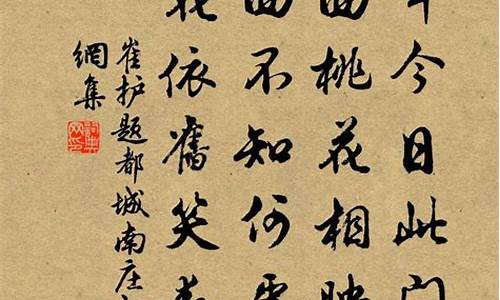 年今日此門
面桃花相映
面不知何處
花依舊笑春
崔护题都城南庄
網集